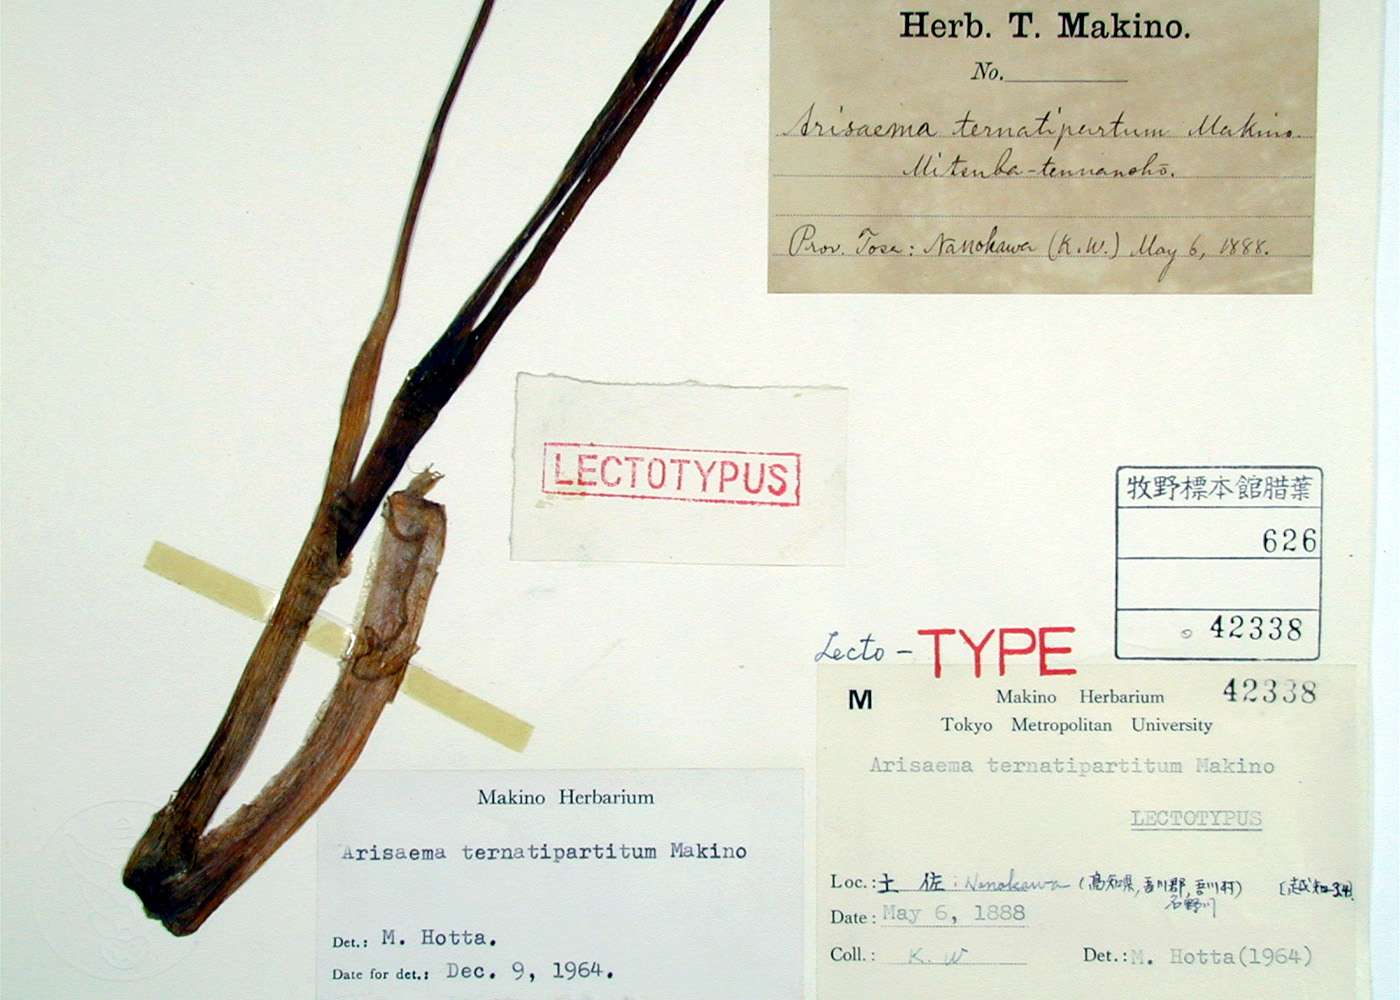 Herb. T. Makino.
No.
Arisaema ternatipartum Makino.
Mitsuba-tennanshō.
Prov. Tosa: Nanokawa (K.W.) May 6, 1888.
LECTOTYPUS
牧野標本館腊葉
626
42338
Lecto-TYPE
M Makino Herbarium 42338
Tokyo Metropolitan University
Arisaema ternatipartitum Makino
LECTOTYPUS
Loc.: 土佐: Nanokawa (高知県, 吾川郡, 吾川村) [越知-34]
名野川
Date: May 6, 1888
Coll.: K. W Det.: M. Hotta (1964)
Makino Herbarium
Arisaema ternatipartitum Makino
Det.: M. Hotta.
Date for det.: Dec. 9, 1964.